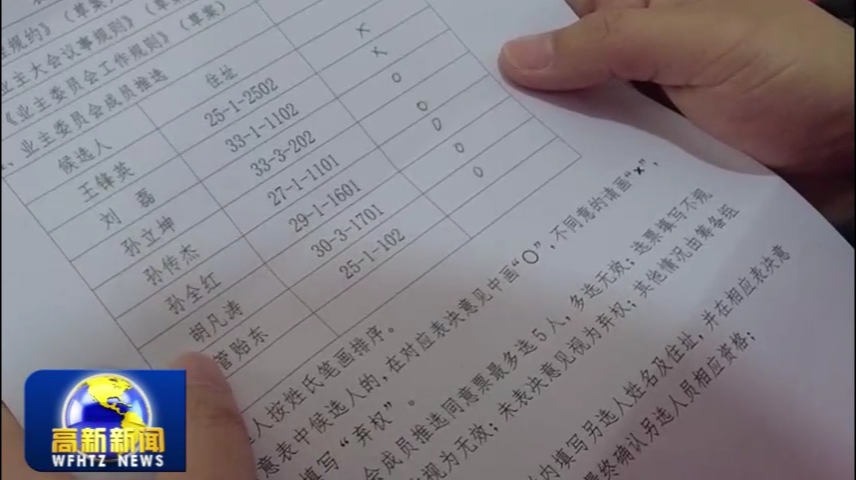 规约》（草案
业主大会议事规则》（草案
《业主委员会工作规则》（草案）
、业主委员会成员推选
候选人 住址
王锋英 25-1-2502 ×
刘 磊 33-1-1102 ×
孙立坤 33-3-202 O
孙传杰 27-1-1101 O
孙全红 29-1-1601 O
胡凡涛 30-3-1701 O
管贻东 25-1-102 O
人按姓氏笔画排序。
意表中候选人的，在对应表决意见中画“O”，不同意的请画“×”，
填写“弃权”。
会成员推选同意票最多选5人，多选无效；选票填写不规
视为无效；未表决意见视为弃权；其他情况由筹备组
内填写另选人姓名及住址，并在相应表决意
终确认另选人员相应资格；
高新新闻
WFHTZ NEWS